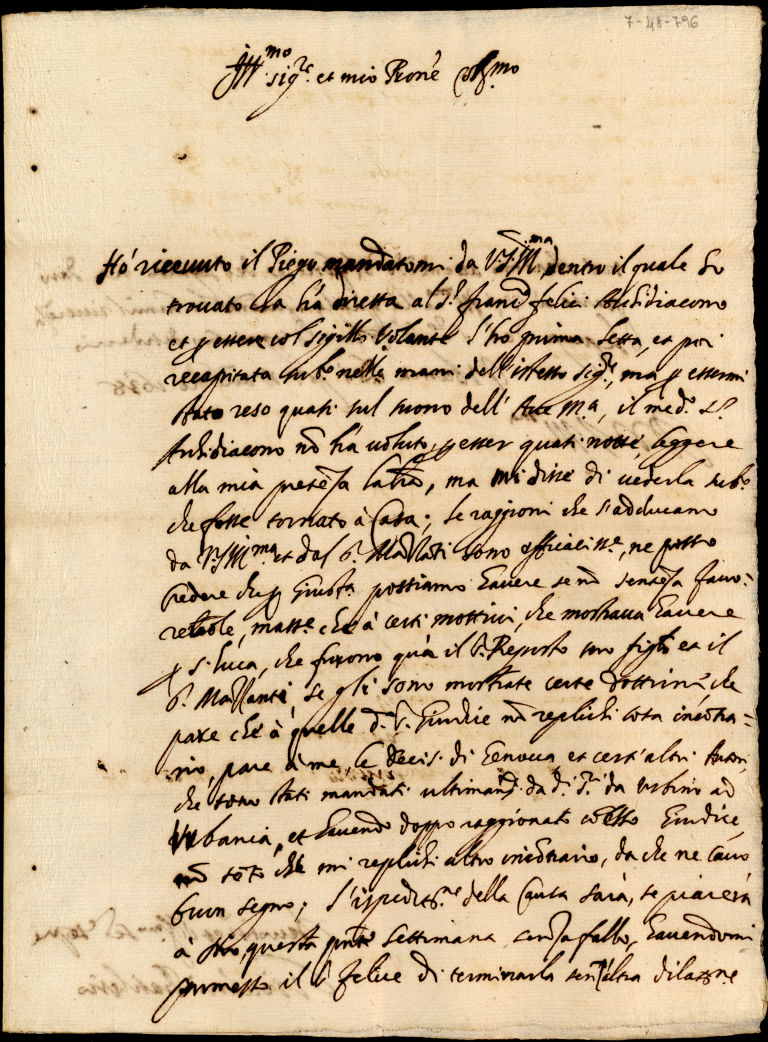 7-48-796
Ill.mo sig.re et mio Prone Oss.mo
Hó riceuuto il Piego mandatomi da V.S.Ill.ma dentro il quale ho
trouato la fra diretta al S.r Franc.o felici Arcidiacono
et p essere col sigillo Volante l'ho prima letta, et poi
recapitata sub.o nelle mani dell'istesso sig.re, ma p essermi
stato reso quasi sul suono dell' Aue M.a, il med.o S.r
Arcidiacono nõ há uoluto, p esser quasi notte, leggere
alla mia presẽza la fra, ma mi disse di uederla sub.o
che fosse tornato à Casa; le raggioni che s'adducano
da V.S.Ill.ma et dal S.r Mallati sono efficaciss.e, ne posso
credere che p Giust.a possiamo hauere se nõ sentẽza fauo-
reuole, mass.e che à certi mottiui, che mostraua hauere
p S. Luca, che furono quà il S.r suo figlio et il
S.r se gli sono mostrate certe dottrine, che
pare che à quelle d.o S.r Giudice nõ replichi cosa incõtra-
rio, pare à me le decis. di Genoua et cert'altri Autori,
che sono stati mandati ultimam.te da d.i S.ri da Urbino ad
Urbania, et hauendo doppo raggionato cõ esso Giudice
nõ sẽto che mi replichi altro incõtrario, da che ne cauo
buon segno; l'ispedit.ne della Causa sarà, se piacerà
à Dio, questa pñte settimana senza fallo, hauendomi
promesso il S.r felice di terminarla senz'altra dilaz.ne